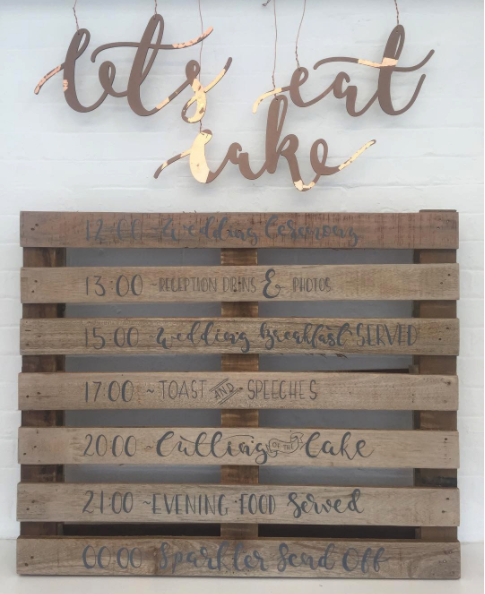 let's eat
cake
12:00 Wedding Ceremony
13:00 - RECEPTION DRINS & PHOTOS
15:00 wedding breakfast SERVED
17:00 ~ TOAST AND SPEECHES
20:00 Cutting OF THE Cake
21:00 - EVENING FOOD Served
00:00 Sparkler Send Off